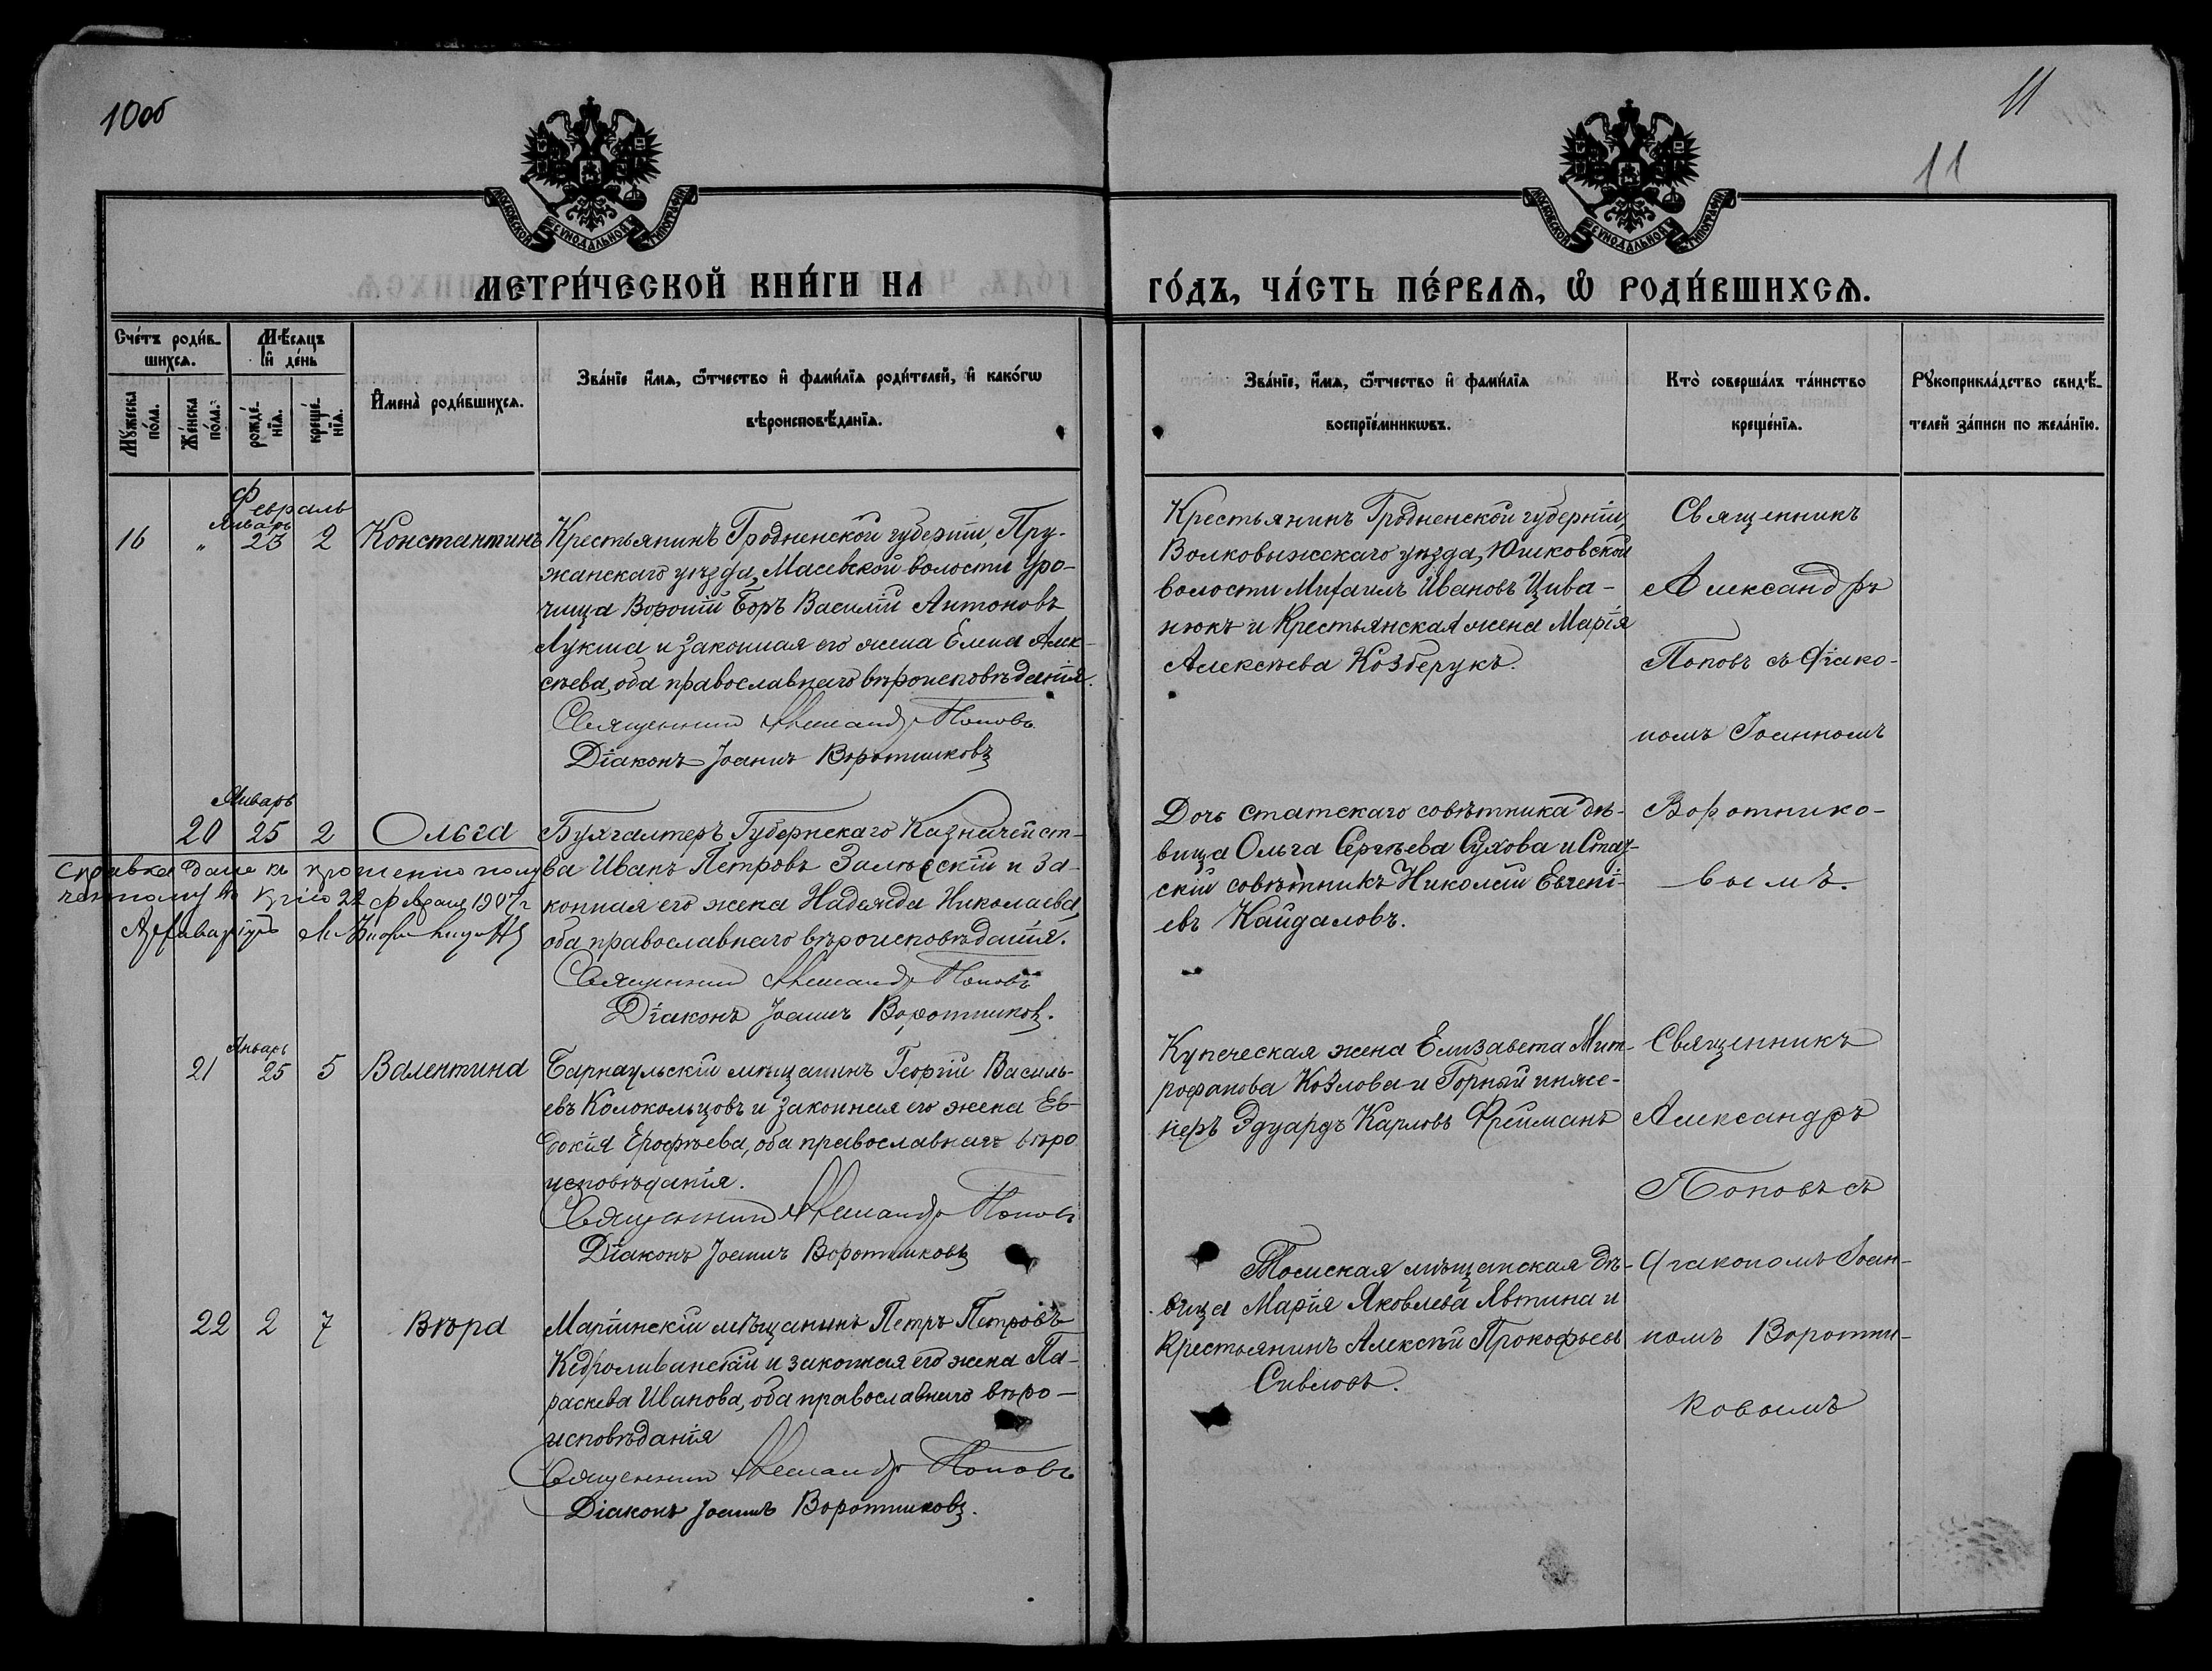 10об
11
11
МОСКОВСКОЙ СѴНОДАЛЬНОЙ ТИПОГРАФІИ
МОСКОВСКОЙ СѴНОДАЛЬНОЙ ТИПОГРАФІИ
МЕТРИ́ЧЕСКОЙ КНИ́ГИ НА
ГО́ДЪ, ЧА́СТЬ ПЕ́РВАѦ, Ѿ РОДИ́ВШИХСѦ.
Сче́тъ роди́в-
шихсѧ.
Мѣ́сѧцъ
и҆ де́нь
Мꙋ́жеска
по́ла.
Же́нска
по́ла.
рожде́-
нїѧ.
креще́-
нїѧ.
И҆мена̀ роди́вшихсѧ.
Зва́нїе и҆́мѧ, ѻ҆́тчество и҆ фами́лїѧ роди́телей, и҆ како́гѡ
вѣроисповѣ́данїѧ.
Зва́нїе, и҆́мѧ, ѻ҆́тчество и҆ фами́лїѧ
воспрїе́мникѡвъ.
Кто̀ соверша́лъ та́инство
креще́нїѧ.
Рꙋкоприкла́дство свидѣ́-
телей за́писи по жела́нїю.
Февраль
Январь
16 " 23 2 Константинъ
Крестьянинъ Гродненской губерніи, Пру-
жанскаго уѣзда, Масевской волости Уро-
чища Вороній Боръ Василій Антоновъ
Лукша и законная его жена Елена Алек-
сѣева, оба православнаго вѣроисповѣданія.
Священникъ Александръ Поповъ
Діаконъ Іоаннъ Воротниковъ
Крестьянинъ Гродненской губерніи,
Волковыжскаго уѣзда, Юшковской
волости Михаилъ Ивановъ Цива-
нюкъ и Крестьянская жена Марія
Алексѣева Козберукъ.
Священникъ
Александръ
Поповъ съ діако-
номъ Іоанномъ
Воротнико-
вымъ.
Январь
20 25 2 Ольга
Бухгалтеръ Губернскаго Казначейст-
ва Иванъ Петровъ Залѣсскій и за-
конная его жена Надежда Николаева,
оба православнаго вѣроисповѣданія.
Священникъ Александръ Поповъ
Діаконъ Іоаннъ Воротниковъ.
Дочь статскаго совѣтника дѣ-
вица Ольга Сергѣева Сухова и Стат-
скій совѣтникъ Николай Евгені-
евъ Кайдаловъ.
справка дана къ прошенію полу
ченному въ 22 февраля 1907 г
Архиваріусъ
Январь
21 25 5 Валентина
Барнаульскій мѣщанинъ Георгій Василь-
евъ Колокольцовъ и законная его жена Ев-
докія Ерофѣева, оба православнаго вѣро
исповѣданія.
Священникъ Александръ Поповъ
Діаконъ Іоаннъ Воротниковъ
Купеческая жена Елизавета Мит-
рофанова Козлова и Горный инже-
неръ Эдуардъ Карловъ Фрейманъ
Священникъ
Александръ
Поповъ съ
діакономъ Іоан-
номъ Воротни-
ковымъ
22 2 7 Вѣра
Маріинскій мѣщанинъ Петръ Петровъ
Кедроливанскій и законная его жена Па-
раскева Иванова, оба православнаго вѣро-
исповѣданія
Священникъ Александръ Поповъ
Діаконъ Іоаннъ Воротниковъ.
Томская мѣщанская дѣ-
вица Марія Яковлева Явтина и
Крестьянинъ Алексѣй Прокофьевъ
Сивловъ.